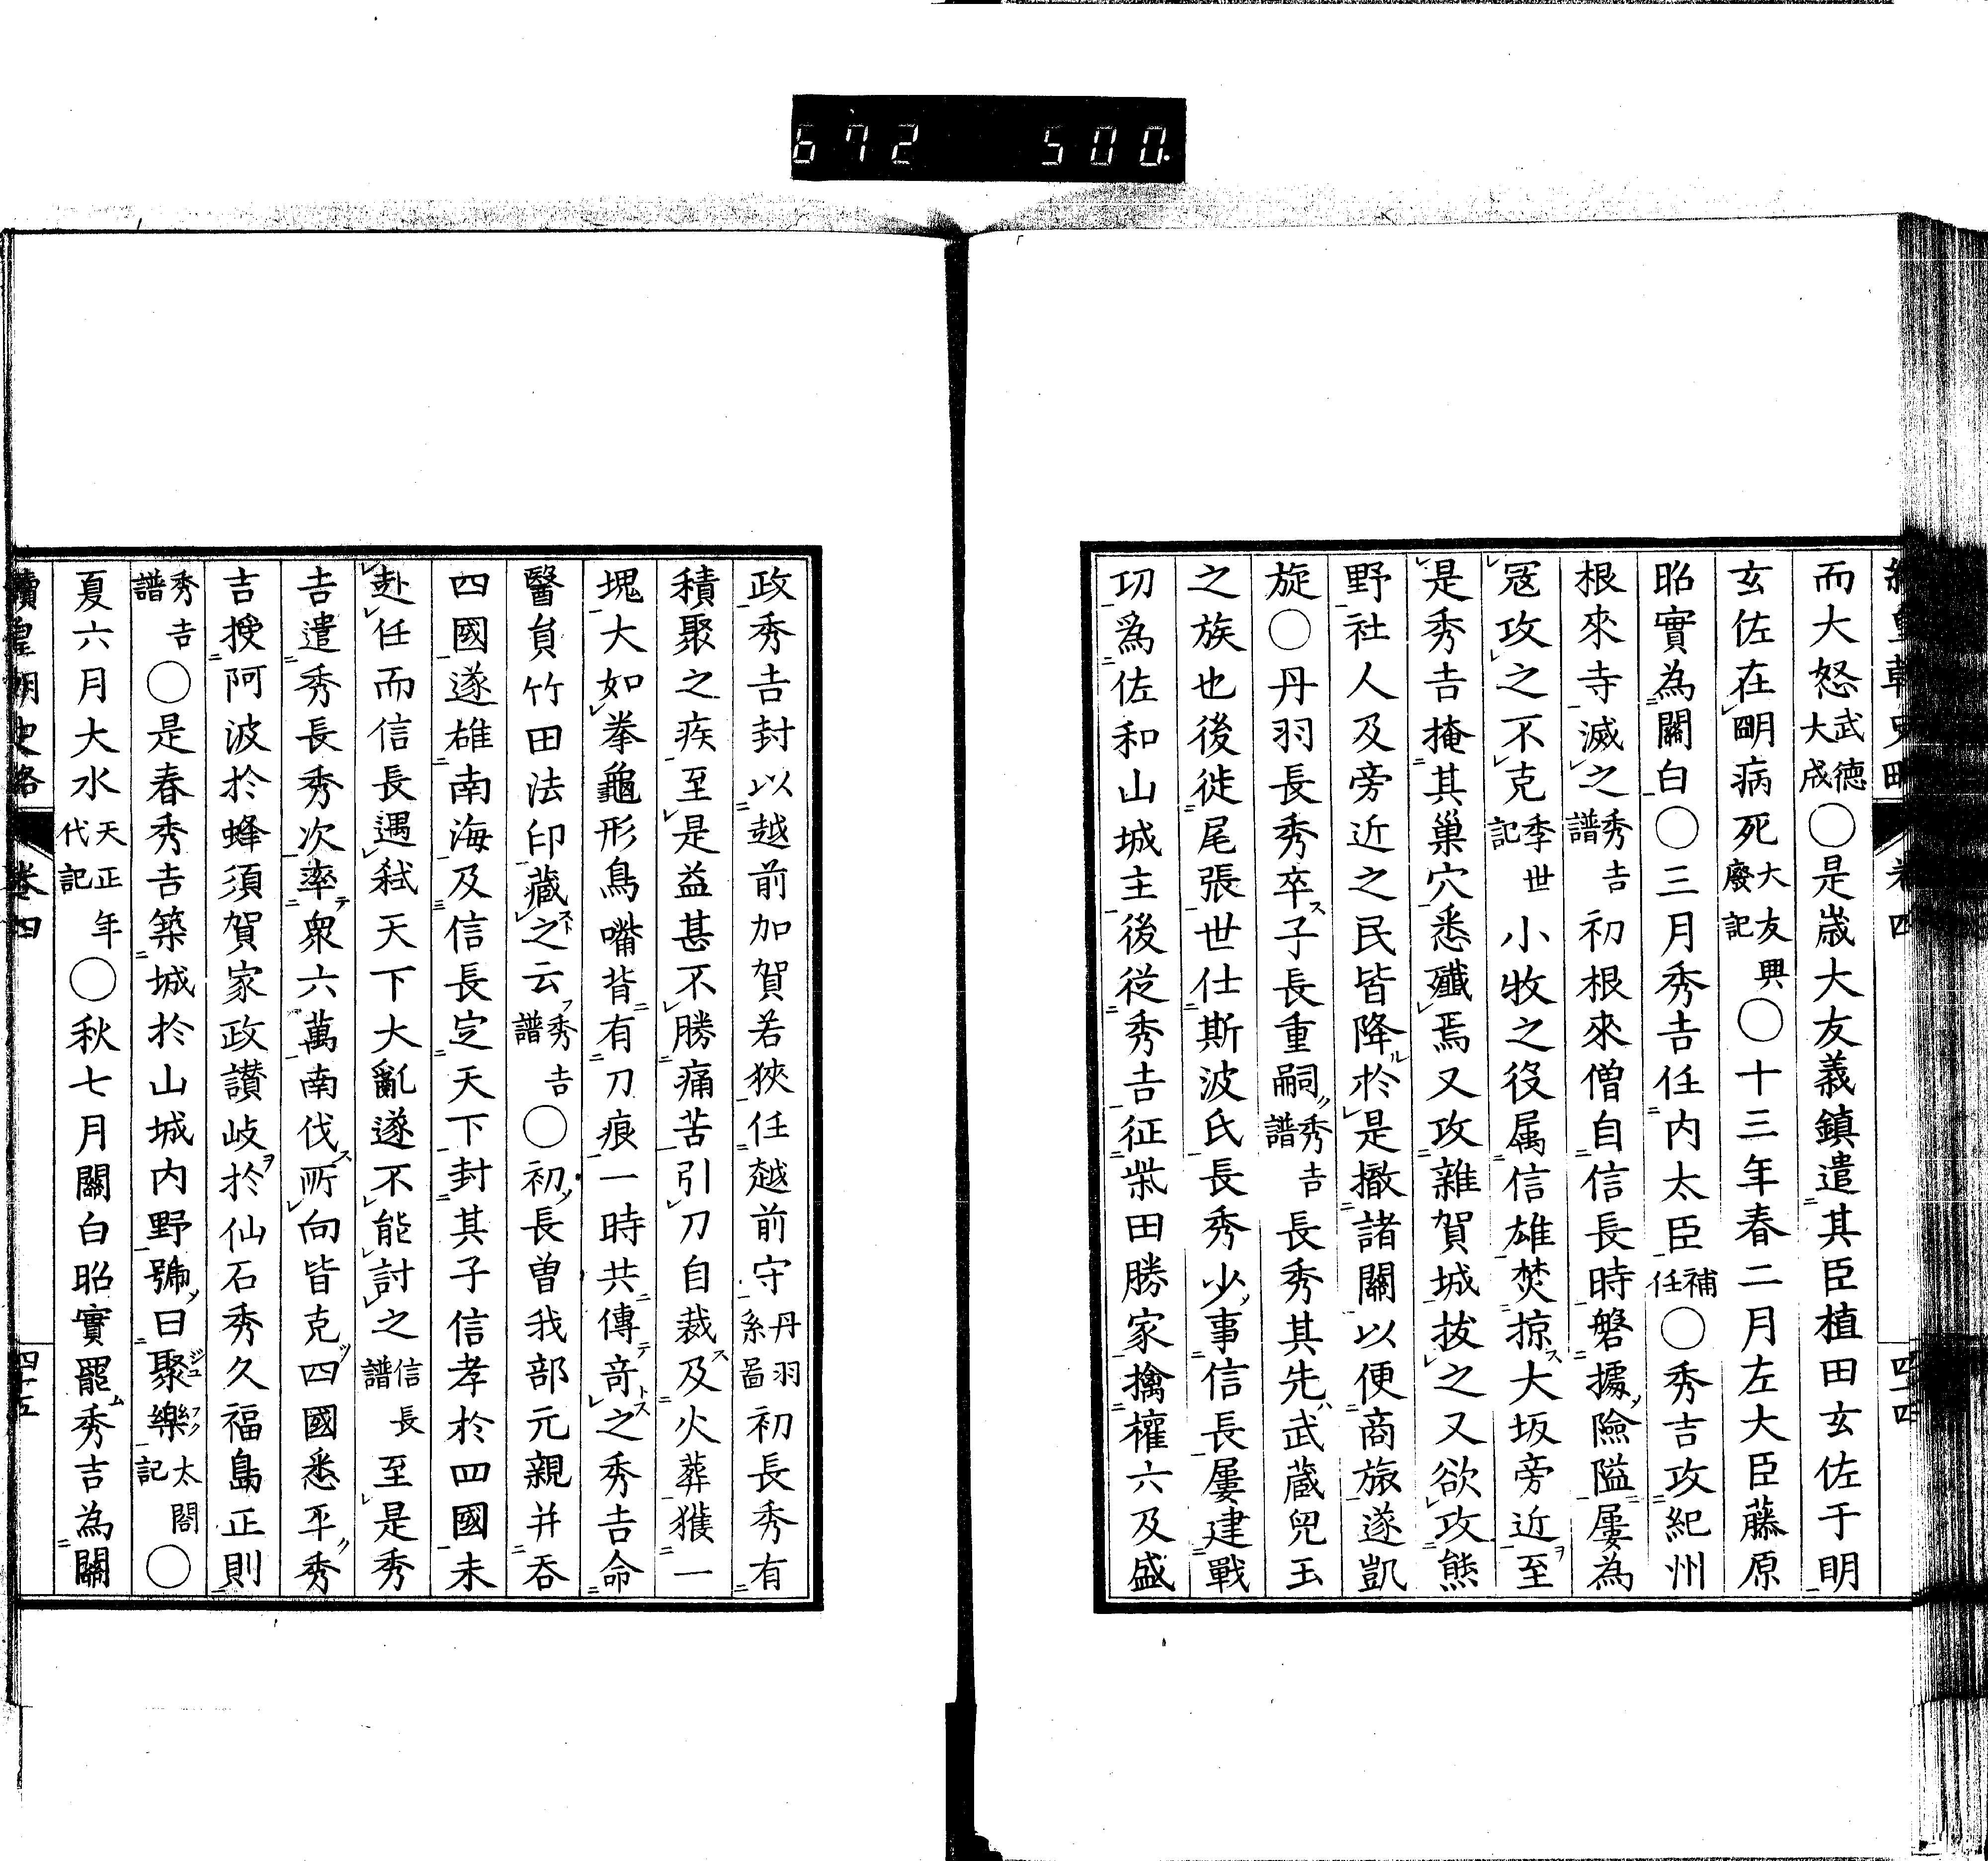 672 500.
而大怒武德大成〇是歳大友義鎮遣其臣植田玄佐于明
玄佐在明病死大友興廢記〇十三年春二月左大臣藤原
昭實為關白〇三月秀吉任内太臣補任〇秀吉攻紀州
根來寺滅之秀吉譜初根來僧自信長時磐據險隘屢為
冦攻之不克季世記小牧之役属信雄焚掠大坂旁近至
是秀吉掩其巢穴悉殲焉又攻雜賀城拔之又欲攻熊
野社人及旁近之民皆降於是撤諸關以便商旅遂凱
旋〇丹羽長秀卒子長重嗣秀吉譜長秀其先武蔵兒玉
之族也後徙尾張世仕斯波氏長秀少事信長屢建戰
功爲佐和山城主後從秀吉征柴田勝家擒權六及盛
政秀吉封以越前加賀若狹任越前守丹羽系圖初長秀有
積聚之疾至是益甚不勝痛苦引刀自裁及火葬獲一
塊大如拳龜形鳥嘴背有刀痕一時共傳竒之秀吉命
醫負竹田法印藏之云秀吉譜〇初長曽我部元親并吞
四國遂雄南海及信長定天下封其子信孝於四國未
赴任而信長遇弑天下大亂遂不能討之信長譜至是秀
吉遣秀長秀次率衆六萬南伐所向皆克四國悉平秀
吉授阿波於蜂須賀家政讃岐於仙石秀久福島正則
秀吉譜〇是春秀吉築城於山城内野號曰聚樂太閤記〇
夏六月大水天正年代記〇秋七月關白昭實罷秀吉為關
續皇朝史略 卷四 四十五